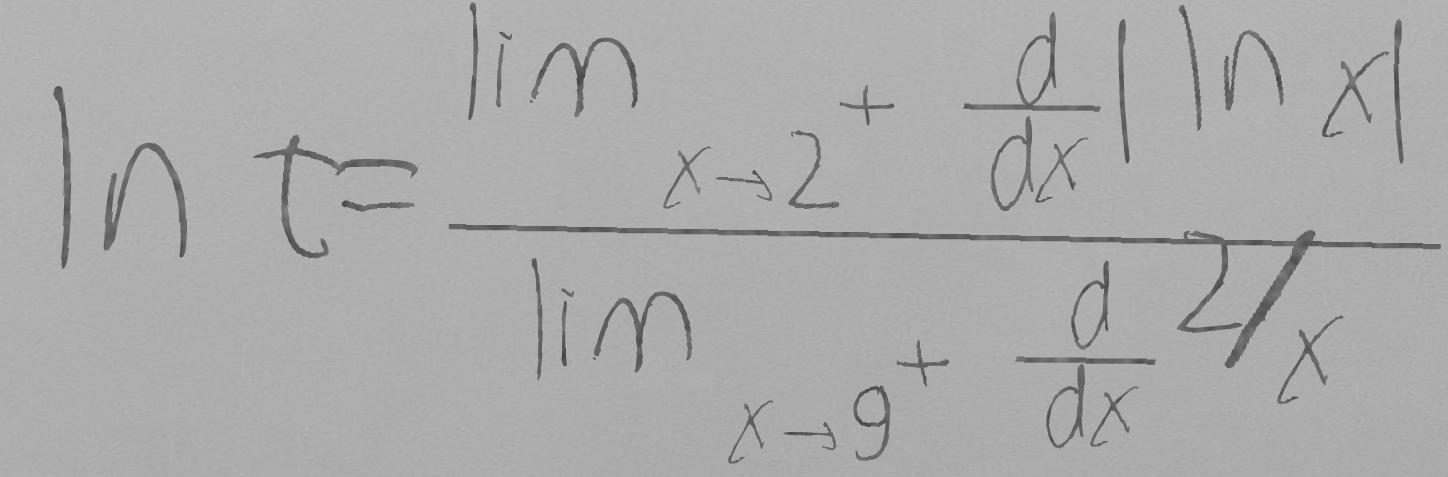 ln t = \frac{\lim_{x \to 2^+} \frac{d}{dx} |\ln x|}{\lim_{x \to 9^+} \frac{d}{dx} 2/x}